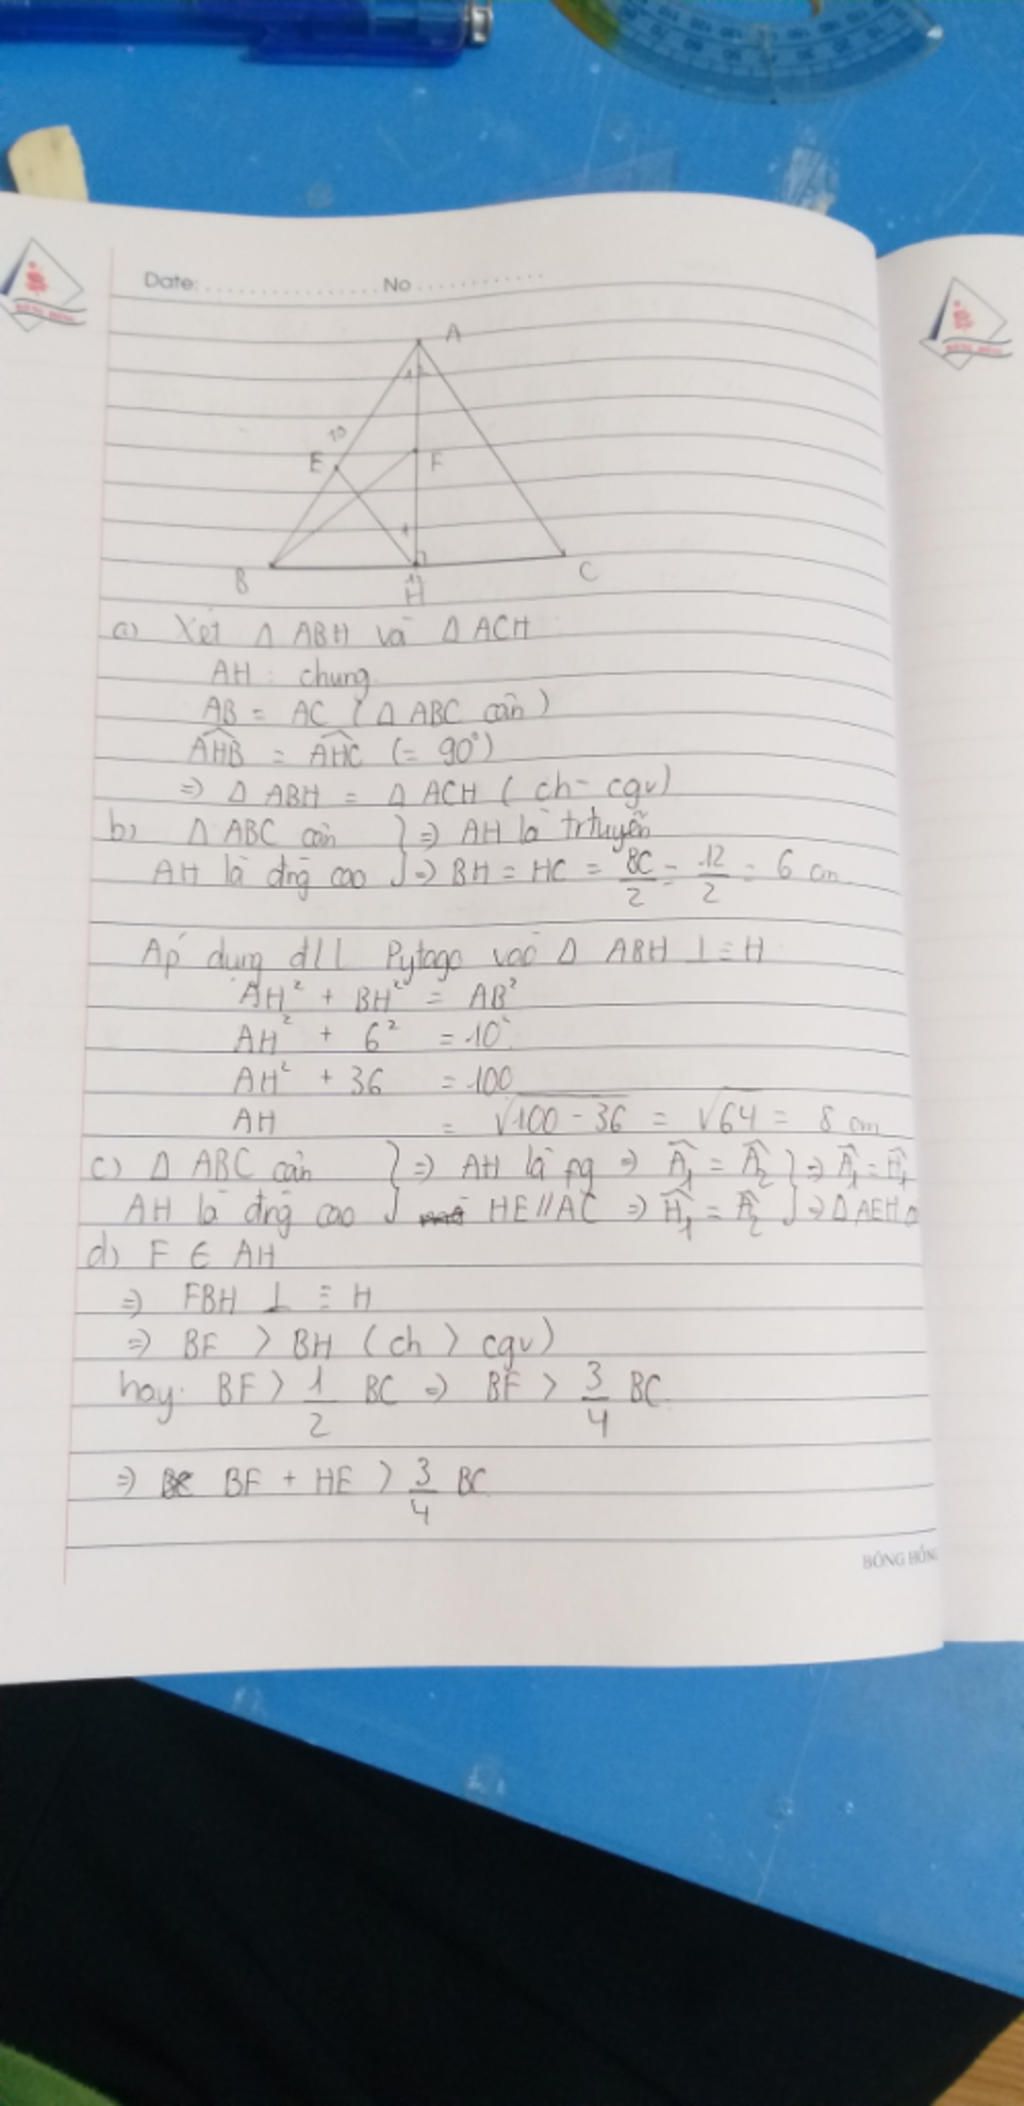 Date: ................ No ............
A
1
10
E
F
1
B
H
C
a) Xét Δ ABH và Δ ACH
AH : chung
AB = AC (Δ ABC cân)
AHB = AHC (= 90°)
=> Δ ABH = Δ ACH (ch - cgv)
b) Δ ABC cân } => AH là trtuyến
AH là đng cao } => BH = HC = BC/2 = 12/2 = 6 cm
Áp dụng đll Pytago vào Δ ABH ⊥ ≡ H
AH² + BH² = AB²
AH² + 6² = 10²
AH² + 36 = 100
AH = √100 - 36 = √64 = 8 cm
c) Δ ABC cân } => AH là pg => Â₁ = Â₂ } => Â₁ = Ĥ₁
AH là đng cao } HE // AC => Ĥ₁ = Â₂ } => Δ AEH
d) F ∈ AH
=> FBH ⊥ ≡ H
=> BF > BH (ch > cgv)
hay: BF > 1/2 BC => BF > 3/4 BC
=> BF + HE > 3/4 BC
BÔNG HỒNG